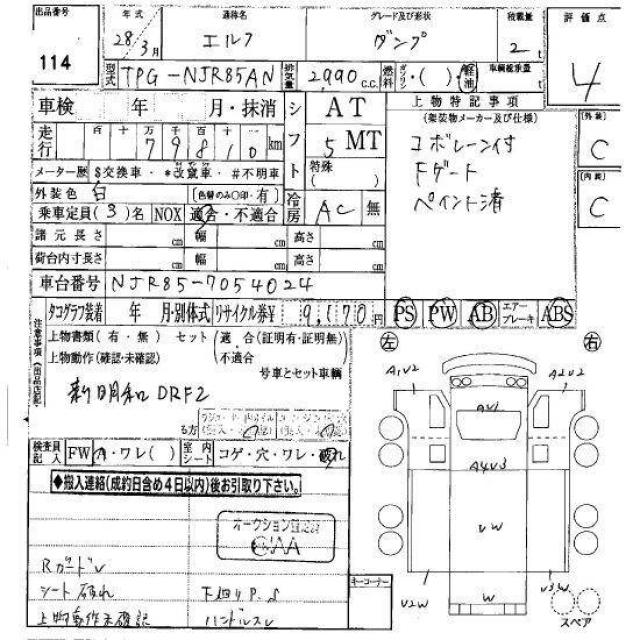 出品番号 年式 通称名 グレード及び形状 積載量 評価点
114 28/3月 エルフ ダンプ 2t 4
型式 TPG-NJR85AN 排気量 2,990c.c. 燃料 ガソリン・( )・軽油 車輌総重量 t
車検 年 月・抹消 シフト AT 上物特記事項
(架装物メーカー及び仕様) [外装]
走行 百 十 万 千 百 十 km 5 MT コボレーン付 C
79810
メーター歴 $交換車・*改竄車・#不明車 特殊( ) Fゲート
外装色 白 [色替のみ○印・有] 冷房 AC 無 ペイント済 [内装]
乗車定員(3)名 NOX 適合・不適合 C
諸元長さ cm 幅 cm 高さ cm
荷台内寸長さ cm 幅 cm 高さ cm
車台番号 NJR85-7054024
タコグラフ装着 年 月・別体式 リサイクル券¥ 9,170円 PS PW AB エアーブレーキ ABS
注意事項(出品店記入)
上物書類(有・無) セット(適合(証明有・証明無)
上物動作(確認・未確認) 不適合 号車とセット車輌
左 右
新明和 DRF2
A1V2 A2V2
AV1
検査員記入 FW A・ワレ( ) 室内シート コゲ・穴・ワレ・破れ
A4V3
◆搬入連絡(成約日含め4日以内)後お引取り下さい。
オークション確認済
CAA
VW
RガードV
シート破れ 下廻りP.S コーナー
上物動作未確認 ハンドルスレ
V2W W V3W
スペア